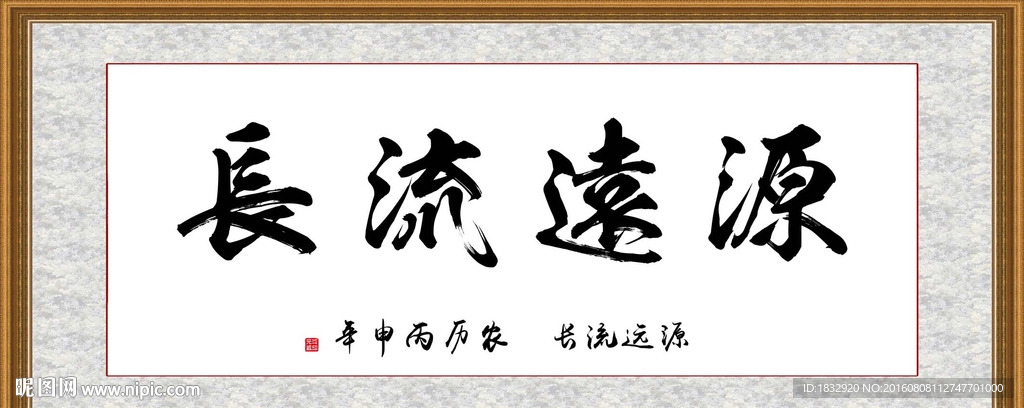 源遠流長
源远流长 农历丙申年
昵图网 www.nipic.com
ID:1832920 NO:20160808112747701000